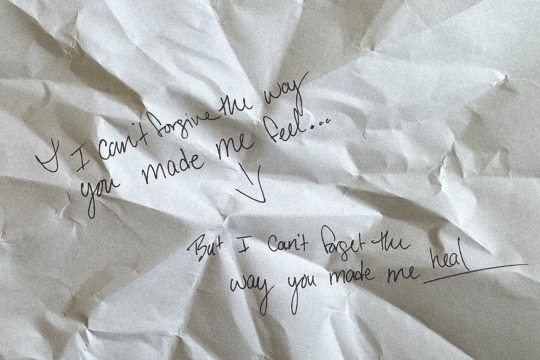 I can't forgive the way
you made me feel...
But I can't forget the
way you made me heal